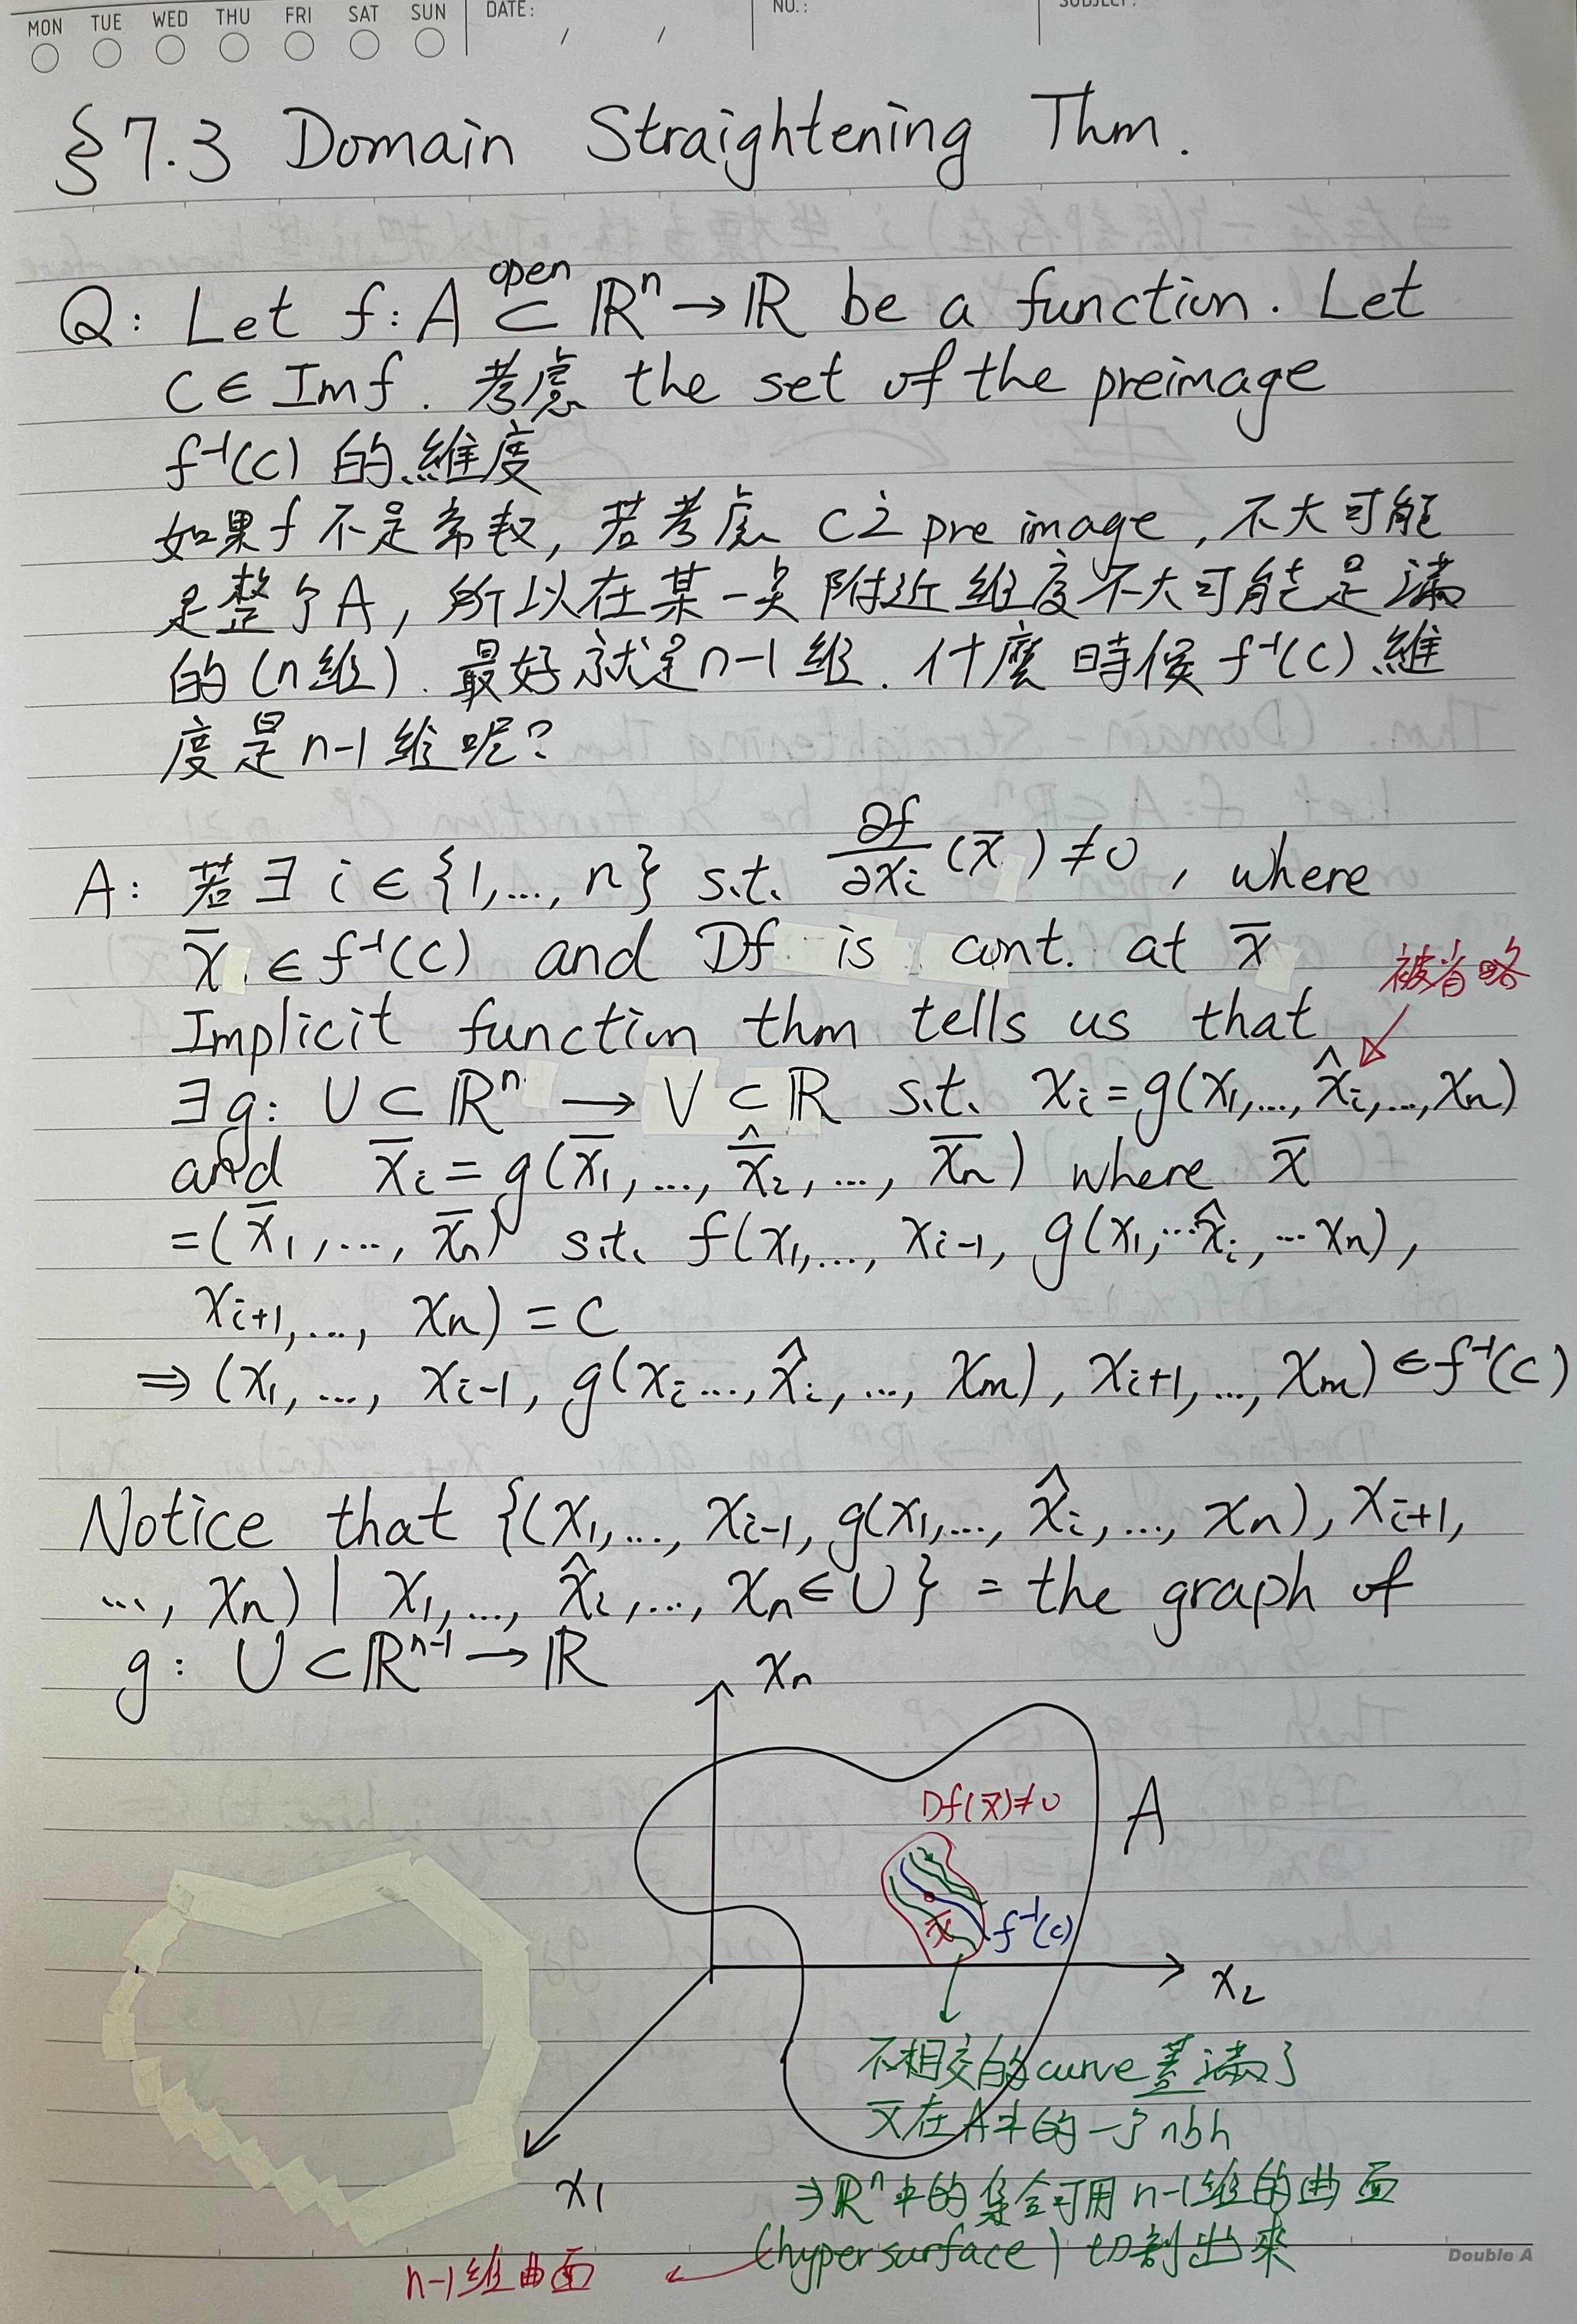 MON TUE WED THU FRI SAT SUN DATE: / / NO.: SUBJECT:
§7.3 Domain Straightening Thm.
Q: Let f: A ⊂^{open} ℝⁿ → ℝ be a function. Let
C ∈ Imf. 考慮 the set of the preimage
f⁻¹(C) 的維度
如果f不是常數, 若考慮 C之 pre image, 不大可能
是整个A, 所以在某一点附近維度不大可能是滿
的 (n維). 最好就是n-1維. 什麼時候 f⁻¹(C) 維
度是n-1維呢?
A: 若 ∃ i ∈ {1,..., n} s.t. ∂f/∂xᵢ (x̄) ≠ 0, where
x̄ ∈ f⁻¹(C) and Df is cont. at x̄
被省略
Implicit function thm tells us that
∃ g: U ⊂ ℝⁿ → V ⊂ ℝ s.t. xᵢ = g(x₁,..., x̂ᵢ,..., xₙ)
and x̄ᵢ = g(x̄₁,..., x̄̂₂,..., x̄ₙ) where x̄
= (x̄₁,..., x̄ₙ) s.t. f(x₁,..., xᵢ₋₁, g(x₁,...x̂ᵢ,...xₙ),
xᵢ₊₁,..., xₙ) = C
⇒ (x₁,..., xᵢ₋₁, g(xᵢ..., x̂ᵢ,..., xₘ), xᵢ₊₁,..., xₘ) ∈ f⁻¹(C)
Notice that {(x₁,..., xᵢ₋₁, g(x₁,..., x̂ᵢ,..., xₙ), xᵢ₊₁,
..., xₙ) | x₁,..., x̂ᵢ,..., xₙ ∈ U} = the graph of
g: U ⊂ ℝⁿ⁻¹ → ℝ
xₙ
Df(x̄)≠0
A
x̄
f⁻¹(c)
x₂
不相交的curve蓋滿了
x̄在A中的一个nbh
x₁
⇒ℝⁿ中的集合可用n-1維的曲面
(hypersurface) 切割出來
n-1維曲面
Double A